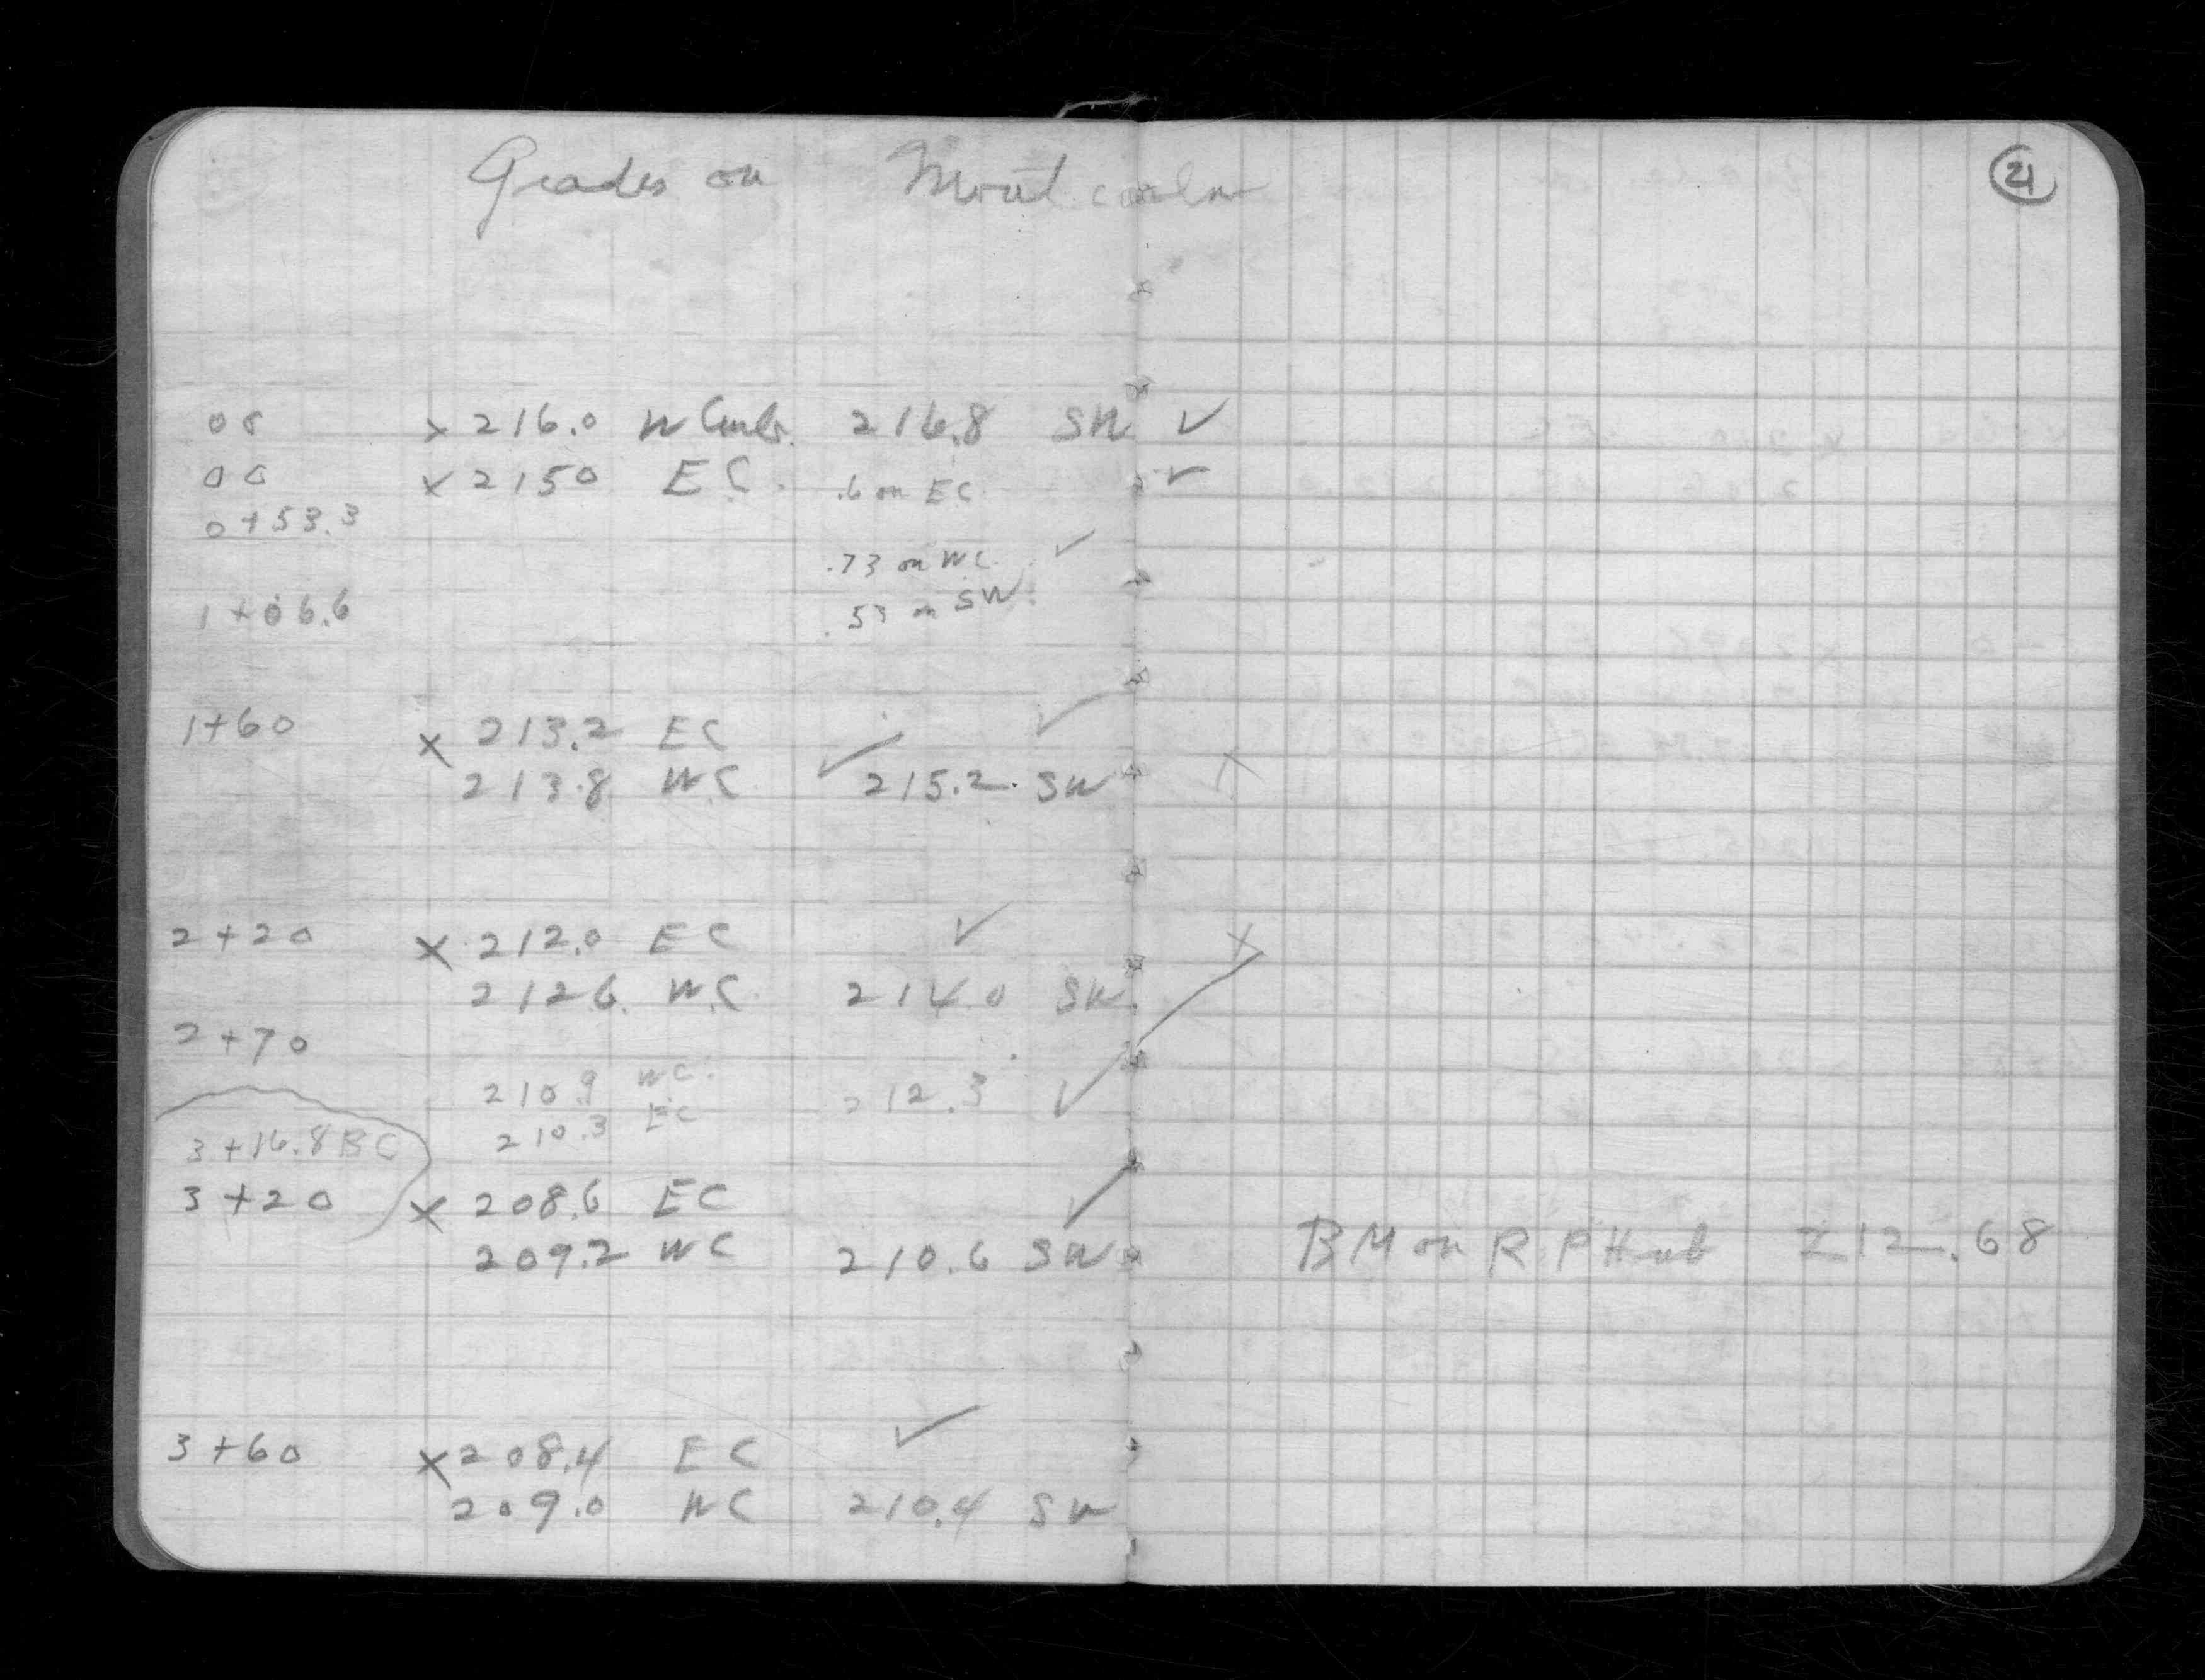 Grades on Montcalm
21
00 x 216.0 W Curb. 216.8 SW ✓
00 x 2150 EC. .6 on EC. ✓
0+53.3
.73 on WC. ✓
1+06.6 .53 on SW.
1+60 x 213.2 EC ✓
213.8 WC ✓ 215.2 SW x
2+20 x 212.0 EC ✓ x
2126. WC. 214.0 SW.
2+70
210.9 WC. 212.3 ✓
210.3 EC
3+16.8 BC
3+20 x 208.6 EC ✓
209.2 WC 210.6 SW
BM on RP Hub 212.68
3+60 x 208.4 EC ✓
209.0 WC 210.4 SW